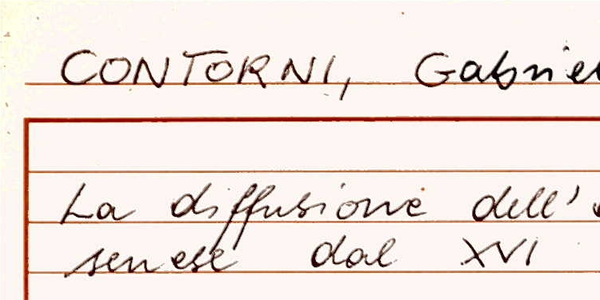 CONTORNI, Gabriel
La diffusione dell'
senese dal XVI